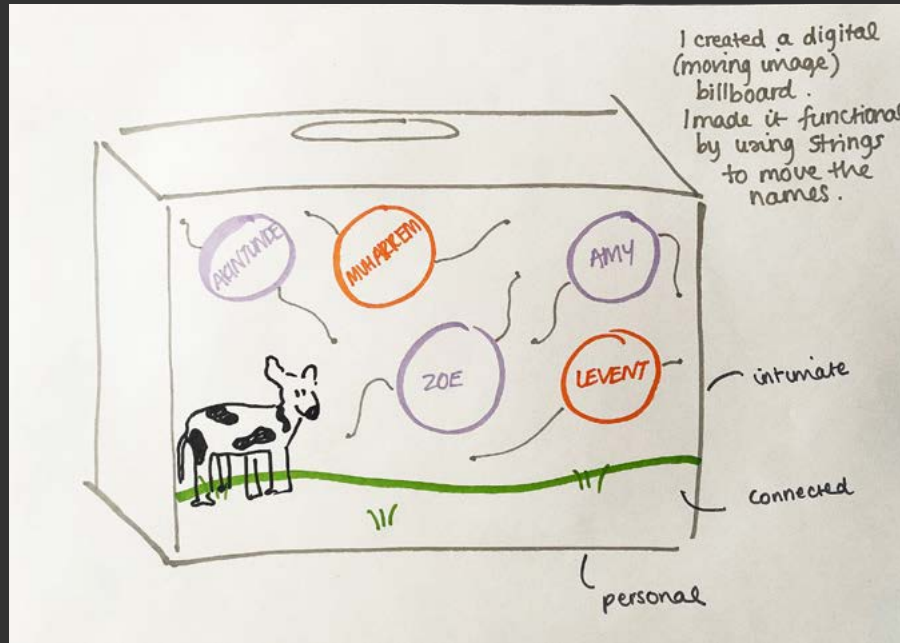 I created a digital
(moving image)
billboard.
I made it functional
by using strings
to move the
names.
AKINTUNDE
MUHARREM
AMY
ZOE
LEVENT
intimate
connected
personal